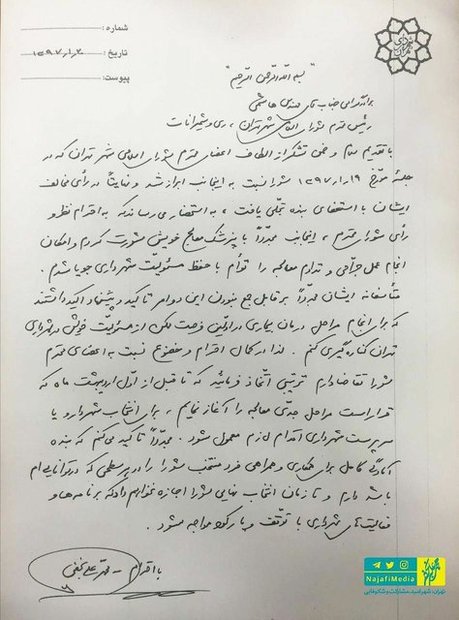 شماره :
تاریخ : ۱۳۹۷/۱/۲۰
پیوست :
بسم الله الرحمن الرحیم
برادر گرامی جناب آقای مهندس هاشمی
رئیس محترم شورای اسلامی شهر تهران، ری و شمیرانات
با تقدیم سلام و ضمن تشکر از الطاف اعضای محترم شورای اسلامی شهر تهران که در
جلسه مورخ ۱۳۹۷/۱/۱۹ شورا نسبت به اینجانب ابراز شد و نهایتاً در رأی مخالف
ایشان با استعفای بنده تجلّی یافت، به استحضار می‌رساند که به احترام نظر و
رأی شورای محترم، اینجانب مجدّداً با پزشک معالج خویش مشورت کردم و امکان
انجام عمل جرّاحی و تداوم معالجه را توأم با حفظ مسئولیّت شهرداری جویا شدم.
متأسفانه ایشان مجدّداً بر قابل جمع نبودن این دو امر تأکید و پیشنهاد اکید داشتند
که برای انجام مراحل درمان بیماری در اوّلین فرصت ممکن از مسئولیّت خویش در شهرداری
تهران کناره‌گیری کنم. لذا در کمال احترام و خضوع نسبت به اعضای محترم
شورا تقاضا دارم ترتیبی اتّخاذ فرمائید که تا قبل از اوّل اردیبهشت ماه که
قرار است مراحل جدّی معالجه را آغاز نمایم، برای انتخاب شهردار و یا
سرپرست شهرداری اقدام لازم معمول شود. مجدّداً تأکید می‌کنم که بنده
آمادگی کامل برای همکاری و همراهی فرد منتخب شورا را در هر سطحی که در توانایی‌ام
باشد دارم و تا زمان انتخاب نهایی شورا اجازه نخواهم داد که برنامه‌ها و
فعالیت‌های شهرداری با توقّف و یا رکود مواجه شود.
با احترام – محمّدعلی نجفی
NajafiMedia
تهران؛ شهر امید، مشارکت و شکوفایی